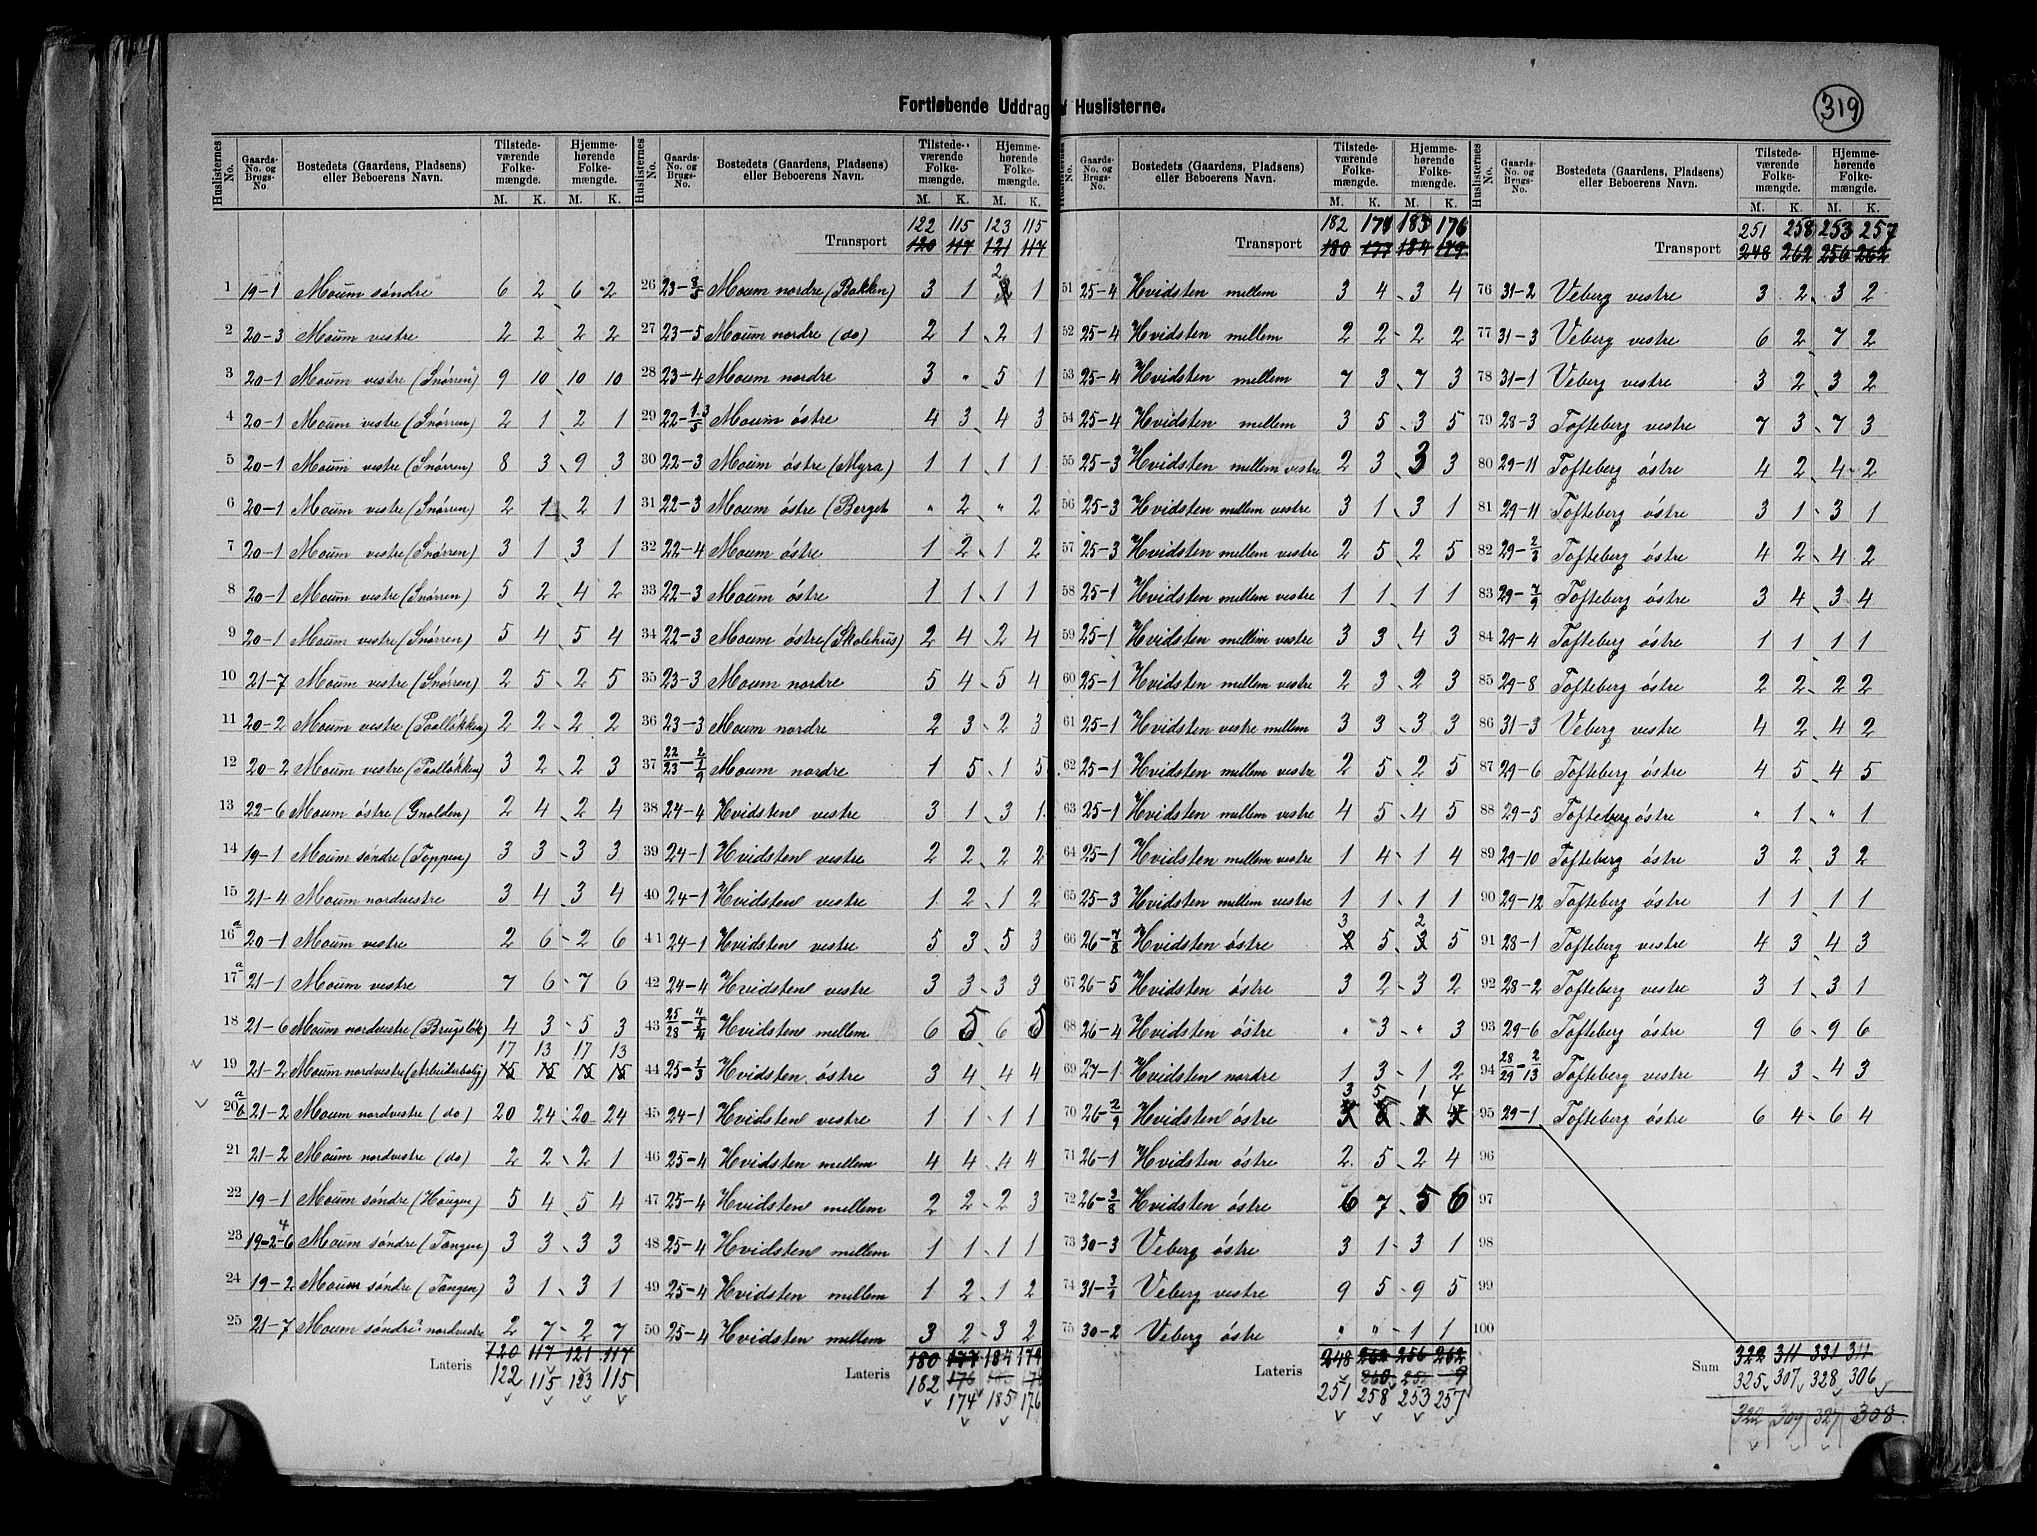 Fortløbende Uddrag af Huslisterne.
319
Huslisternes No. Gaards-No. og Brugs-No. Bostedets (Gaardens, Pladsens) eller Beboerens Navn. Tilstedeværende Folkemængde. M. K. Hjemmehørende Folkemængde. M. K.
1 19-1 Moum söndre 6 2 6 2
2 20-3 Moum vestre 2 2 2 2
3 20-1 Moum vestre (Snörren) 9 10 10 10
4 20-1 Moum vestre (Snörren) 2 1 2 1
5 20-1 Moum vestre (Snörren) 8 3 9 3
6 20-1 Moum vestre (Snörren) 2 1 2 1
7 20-1 Moum vestre (Snörren) 3 1 3 1
8 20-1 Moum vestre (Snörren) 5 2 4 2
9 20-1 Moum vestre (Snörren) 5 4 5 4
10 21-7 Moum vestre (Snörren) 2 5 2 5
11 20-2 Moum vestre (Paalløkken) 2 2 2 2
12 20-2 Moum vestre (Paalløkken) 3 2 2 3
13 22-6 Moum östre (Gnolden) 2 4 2 4
14 19-1 Moum söndre (Toppen) 3 3 3 3
15 21-4 Moum nordvestre 3 4 3 4
16 a 20-1 Moum vestre 2 6 2 6
17 a 21-1 Moum vestre 7 6 7 6
18 21-6 Moum nordvestre (Brugslök) 4 3 5 3
17 13 17 13
19 21-2 Moum nordvestre (Arbeiderbolig) 15 15 15 15
20 a/b 21-2 Moum nordvestre (do) 20 24 20 24
21 21-2 Moum nordvestre (do) 2 2 2 1
22 19-1 Moum söndre (Haugen) 5 4 5 4
23 19-2-6 4 Moum söndre (Tangen) 3 3 3 3
24 19-2 Moum söndre (Tangen) 3 1 3 1
25 21-7 Moum söndre nordvestre 2 7 2 7
Lateris 120 117 121 117
122 115 123 115
Huslisternes No. Gaards-No. og Brugs-No. Bostedets (Gaardens, Pladsens) eller Beboerens Navn. Tilstedeværende Folkemængde. M. K. Hjemmehørende Folkemængde. M. K.
122 115 123 115
Transport 120 117 121 117
26 23-3/5 Moum nordre (Bakken) 3 1 2 1
27 23-5 Moum nordre (do) 2 1 2 1
28 23-4 Moum nordre 3 " 5 1
29 22-1.3/5 Moum östre 4 3 4 3
30 22-3 Moum östre (Myra) 1 1 1 1
31 22-3 Moum östre (Berget " 2 " 2
32 22-4 Moum östre 1 2 1 2
33 22-3 Moum östre 1 1 1 1
34 22-3 Moum östre (Skolehus) 2 4 2 4
35 23-3 Moum nordre 5 4 5 4
36 23-3 Moum nordre 2 3 2 3
37 22/23-2/1/9 Moum nordre 1 5 1 5
38 24-4 Hvidsten vestre 3 1 3 1
39 24-1 Hvidsten vestre 2 2 2 2
40 24-1 Hvidsten vestre 1 2 1 2
41 24-1 Hvidsten vestre 5 3 5 3
42 24-4 Hvidsten vestre 3 3 3 3
43 25/28 Hvidsten mellem 6 5 6 5
44 25-1/3 Hvidsten östre 3 4 4 4
45 24-1 Hvidsten vestre 1 1 1 1
46 25-4 Hvidsten mellem 4 4 4 4
47 25-4 Hvidsten mellem 2 2 2 3
48 25-4 Hvidsten mellem 1 1 1 1
49 25-4 Hvidsten mellem 1 2 1 2
50 25-4 Hvidsten mellem 3 2 3 2
Lateris 180 177 184 179
182 176
174 185 176
Huslisternes No. Gaards-No. og Brugs-No. Bostedets (Gaardens, Pladsens) eller Beboerens Navn. Tilstedeværende Folkemængde. M. K. Hjemmehørende Folkemængde. M. K.
182 174 183 176
Transport 180 177 184 179
51 25-4 Hvidsten mellem 3 4 3 4
52 25-4 Hvidsten mellem 2 2 2 2
53 25-4 Hvidsten mellem 7 3 7 3
54 25-4 Hvidsten mellem 3 5 3 5
55 25-3 Hvidsten mellem vestre 2 3 3 3
56 25-3 Hvidsten mellem vestre 3 1 3 1
57 25-3 Hvidsten mellem vestre 2 5 2 5
58 25-1 Hvidsten mellem vestre 1 1 1 1
59 25-1 Hvidsten mellem vestre 3 3 4 3
60 25-1 Hvidsten mellem vestre 2 3 2 3
61 25-1 Hvidsten vestre mellem 3 3 3 3
62 25-1 Hvidsten mellem vestre 2 5 2 5
63 25-1 Hvidsten mellem vestre 4 5 4 5
64 25-1 Hvidsten mellem vestre 1 4 1 4
65 25-3 Hvidsten mellem vestre 1 1 1 1
3 2
66 26-7/8 Hvidsten östre 2 5 3 5
67 26-5 Hvidsten östre 3 2 3 2
68 26-4 Hvidsten östre " 3 " 3
69 27-1 Hvidsten nordre 1 3 1 2
3 5 1 4
70 26-2/9 Hvidsten östre
71 26-1 Hvidsten östre 2 5 2 4
72 26-3/8 Hvidsten östre 6 7 5 6
73 30-3 Veberg östre 3 1 3 1
74 31-3/1 Veberg vestre 9 5 9 5
75 30-2 Veberg östre " " 1 1
Lateris 248 262 256 262
260 252 9
251 258 253 257
Huslisternes No. Gaards-No. og Brugs-No. Bostedets (Gaardens, Pladsens) eller Beboerens Navn. Tilstedeværende Folkemængde. M. K. Hjemmehørende Folkemængde. M. K.
251 258 253 257
Transport 248 262 256 262
76 31-2 Veberg vestre 3 2 3 2
77 31-3 Veberg vestre 6 2 7 2
78 31-1 Veberg vestre 3 2 3 2
79 28-3 Tofteberg vestre 7 3 7 3
80 29-11 Tofteberg östre 4 2 4 2
81 29-11 Tofteberg östre 3 1 3 1
82 29-2/3 Tofteberg östre 4 2 4 2
83 29-7/9 Tofteberg östre 3 4 3 4
84 29-4 Tofteberg östre 1 1 1 1
85 29-8 Tofteberg östre 2 2 2 2
86 31-3 Veberg vestre 4 2 4 2
87 29-6 Tofteberg östre 4 5 4 5
88 29-5 Tofteberg östre " 1 " 1
89 29-10 Tofteberg östre 3 2 3 2
90 29-12 Tofteberg östre 1 1 1 1
91 28-1 Tofteberg vestre 4 3 4 3
92 28-2 Tofteberg vestre 3 1 3 1
93 29-6 Tofteberg östre 9 6 9 6
94 28/29-2/13 Tofteberg vestre 4 3 4 3
95 29-1 Tofteberg östre 6 4 6 4
96
97
98
99
100
Sum 322 311 331 311
325 307 328 306
322 309 327 308